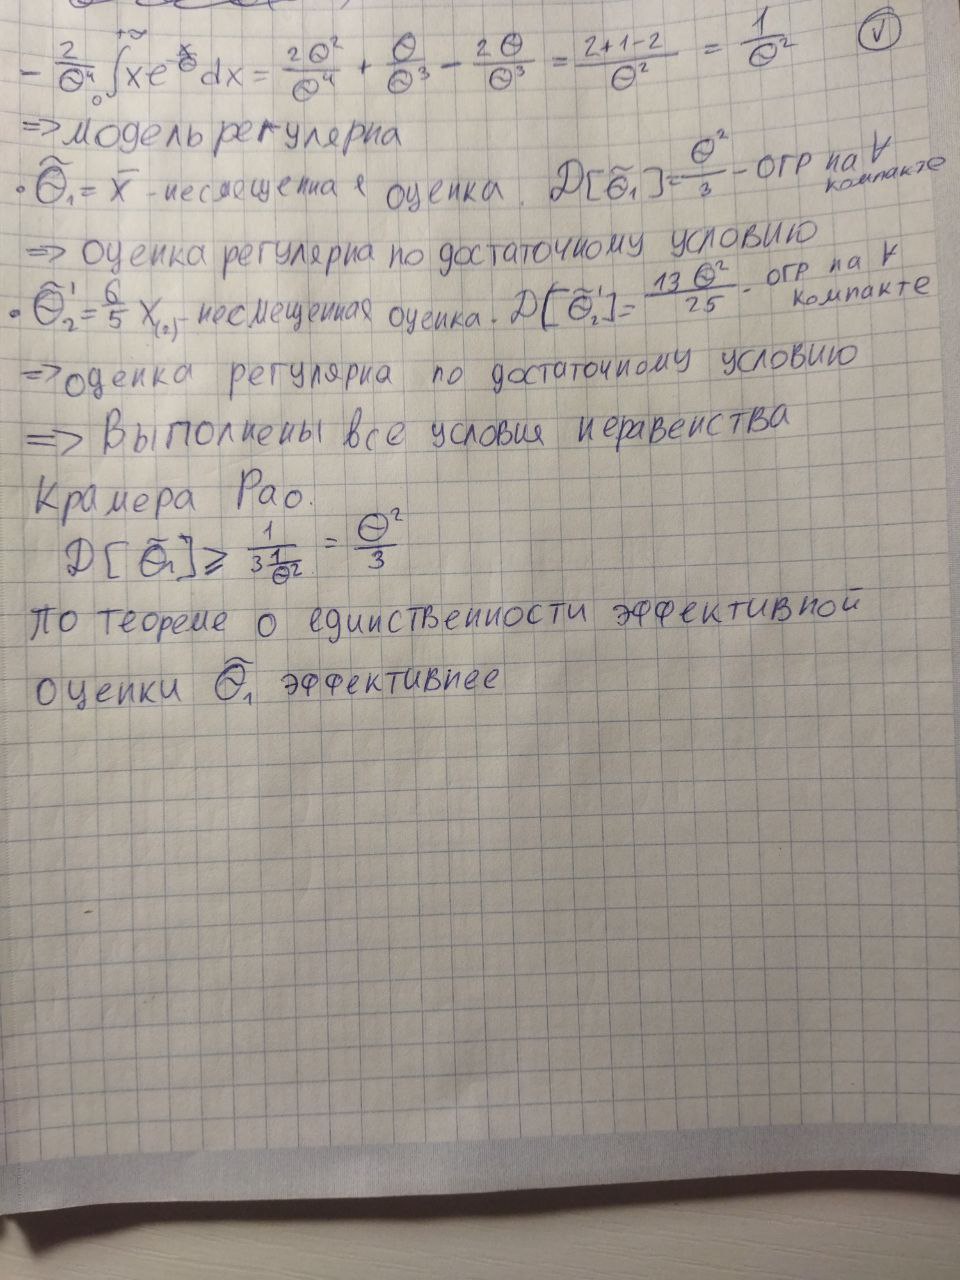 - 2/Θ⁴ ∫₀^{+∞} x e^{-x/Θ} dx = 2Θ²/Θ⁴ + Θ/Θ³ - 2Θ/Θ³ = (2+1-2)/Θ² = 1/Θ² (√)
=> модель регулярна
• Θ̃₁ = x̄ - несмещенная оценка. D[Θ̃₁] = Θ²/3 - огр на ∀ компакте
=> оценка регулярна по достаточному условию
• Θ̃₂' = 6/5 x₍₂₎ - несмещенная оценка. D[Θ̃₂'] = 13Θ²/25 - огр на ∀ компакте
=> оценка регулярна по достаточному условию
=> Выполнены все условия неравенства
Крамера Рао.
D[Θ̃₁] ≥ 1/(3 1/Θ²) = Θ²/3
По теореме о единственности эффективной
оценки Θ̃₁ эффективнее